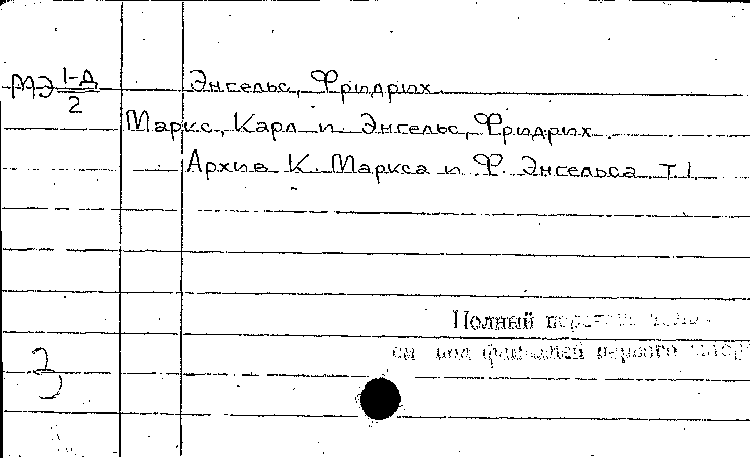 МЭ 1-Д/2 Энгельс, Фридрих.
Маркс, Карл и Энгельс, Фридрих.
Архив К. Маркса и Ф. Энгельса Т. 1.
Полный
см под фамилией первого
3